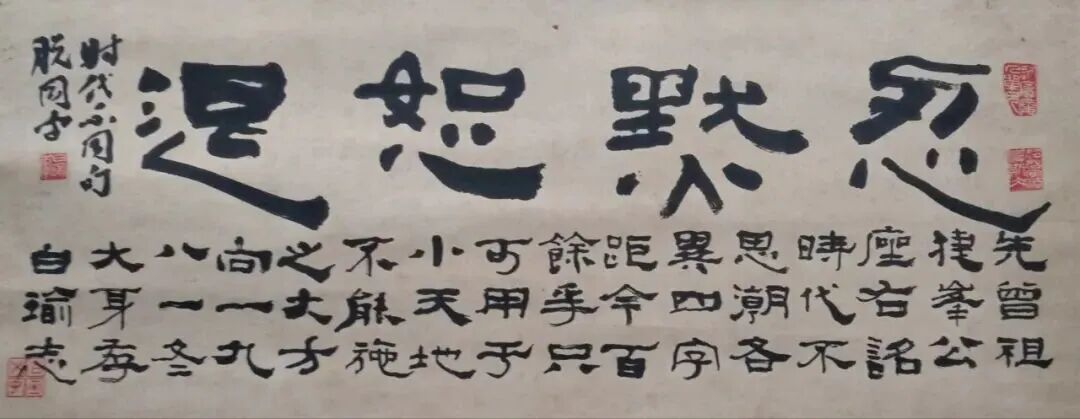 忍默恕退
先曾祖
捷峯公
座右詺
時代不
思潮各
異四字
距今百
餘年只
可用于
小天地
不能施
之大方
向一九
八一冬
大身
白瑜志
时代不同句
脱同字